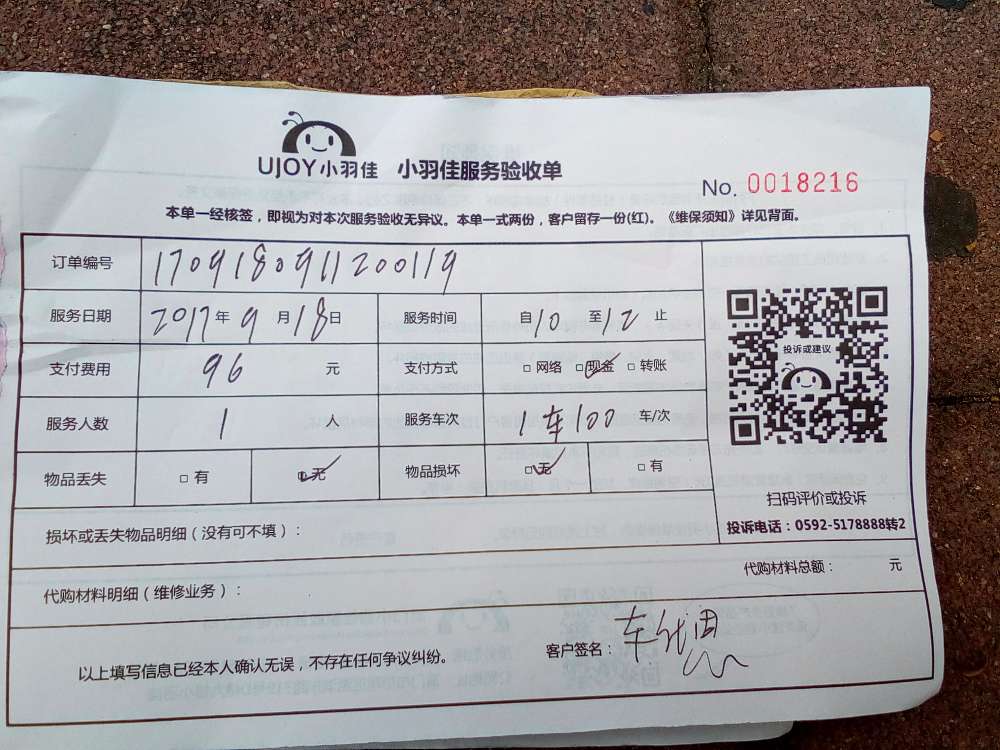 UJOY小羽佳 小羽佳服务验收单
No. 0018216
本单一经核签，即视为对本次服务验收无异议。本单一式两份，客户留存一份(红)。《维保须知》详见背面。
订单编号 170918091120019
服务日期 2017年9月18日 服务时间 自10至12止
支付费用 96 元 支付方式 □ 网络 □ 现金 □ 转账
服务人数 1 人 服务车次 1车100 车/次
物品丢失 □ 有 □ 无 物品损坏 □ 无 □ 有
投诉或建议
扫码评价或投诉
投诉电话：0592-5178888转2
损坏或丢失物品明细（没有可不填）：
代购材料明细（维修业务）： 代购材料总额： 元
以上填写信息已经本人确认无误，不存在任何争议纠纷。 客户签名：车